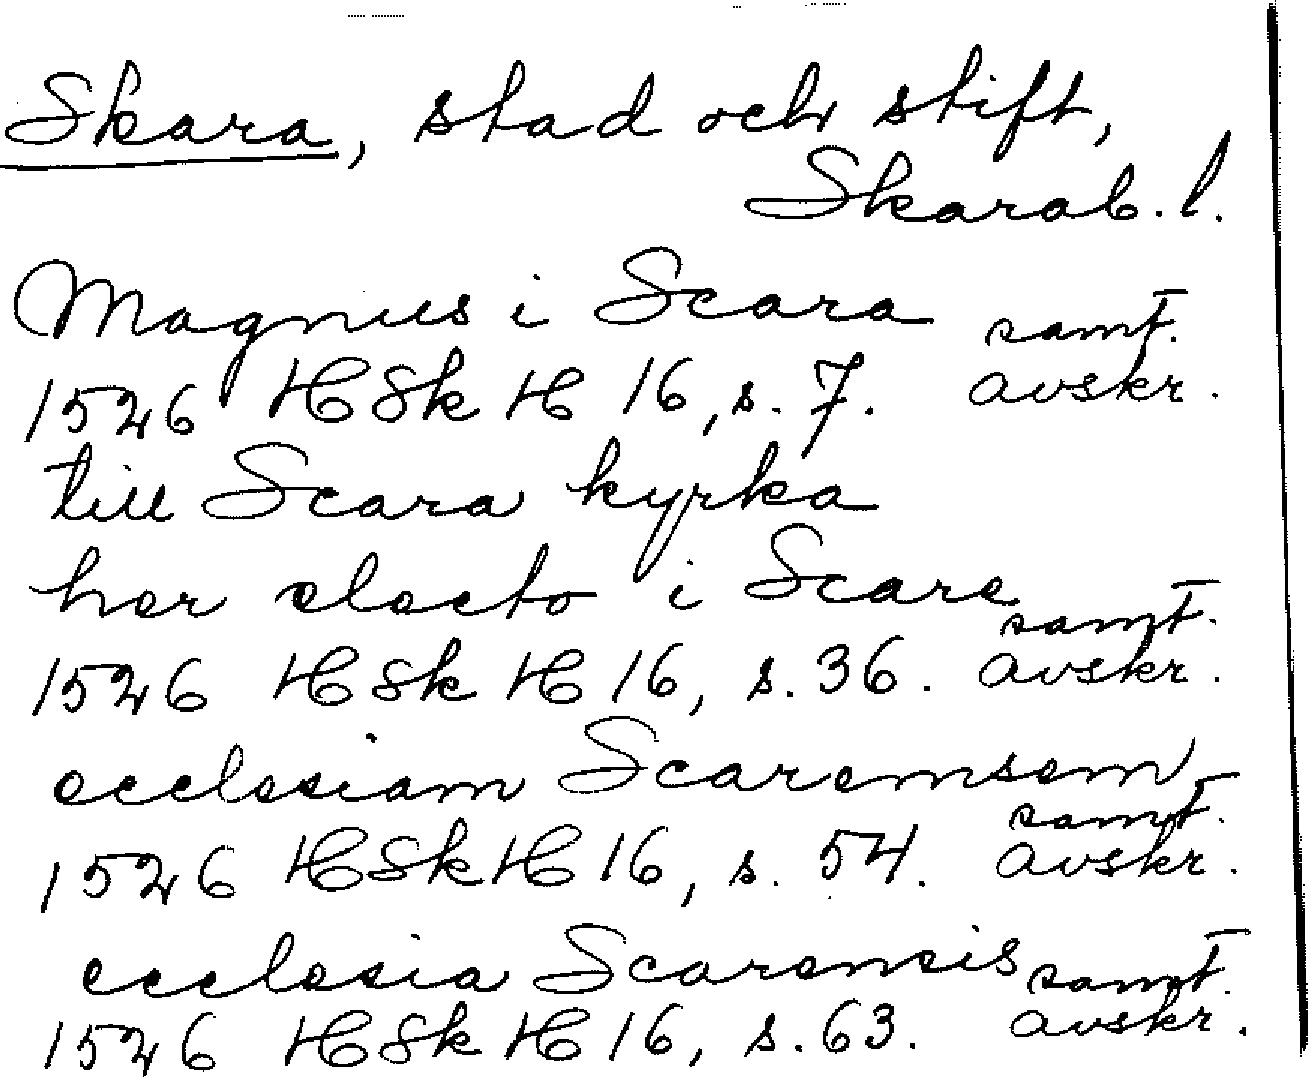 Skara, stad och stift,
Skarab. l.
Magnus i Scara samt.
1526 HSkH 16, s. 7. avskr.
till Scara kyrka
her electo i Scare samt.
1526 HSkH 16, s. 36. avskr.
ecclesiam Scaremsem samt.
1526 HSkH 16, s. 54. avskr.
ecclesia Scarensis samt.
1526 HSkH 16, s. 63. avskr.